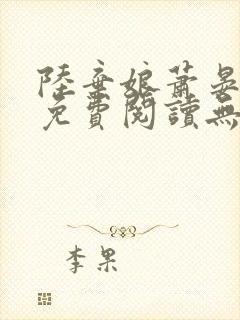 陸棄娘蕭晏
免費閱讀無
李果